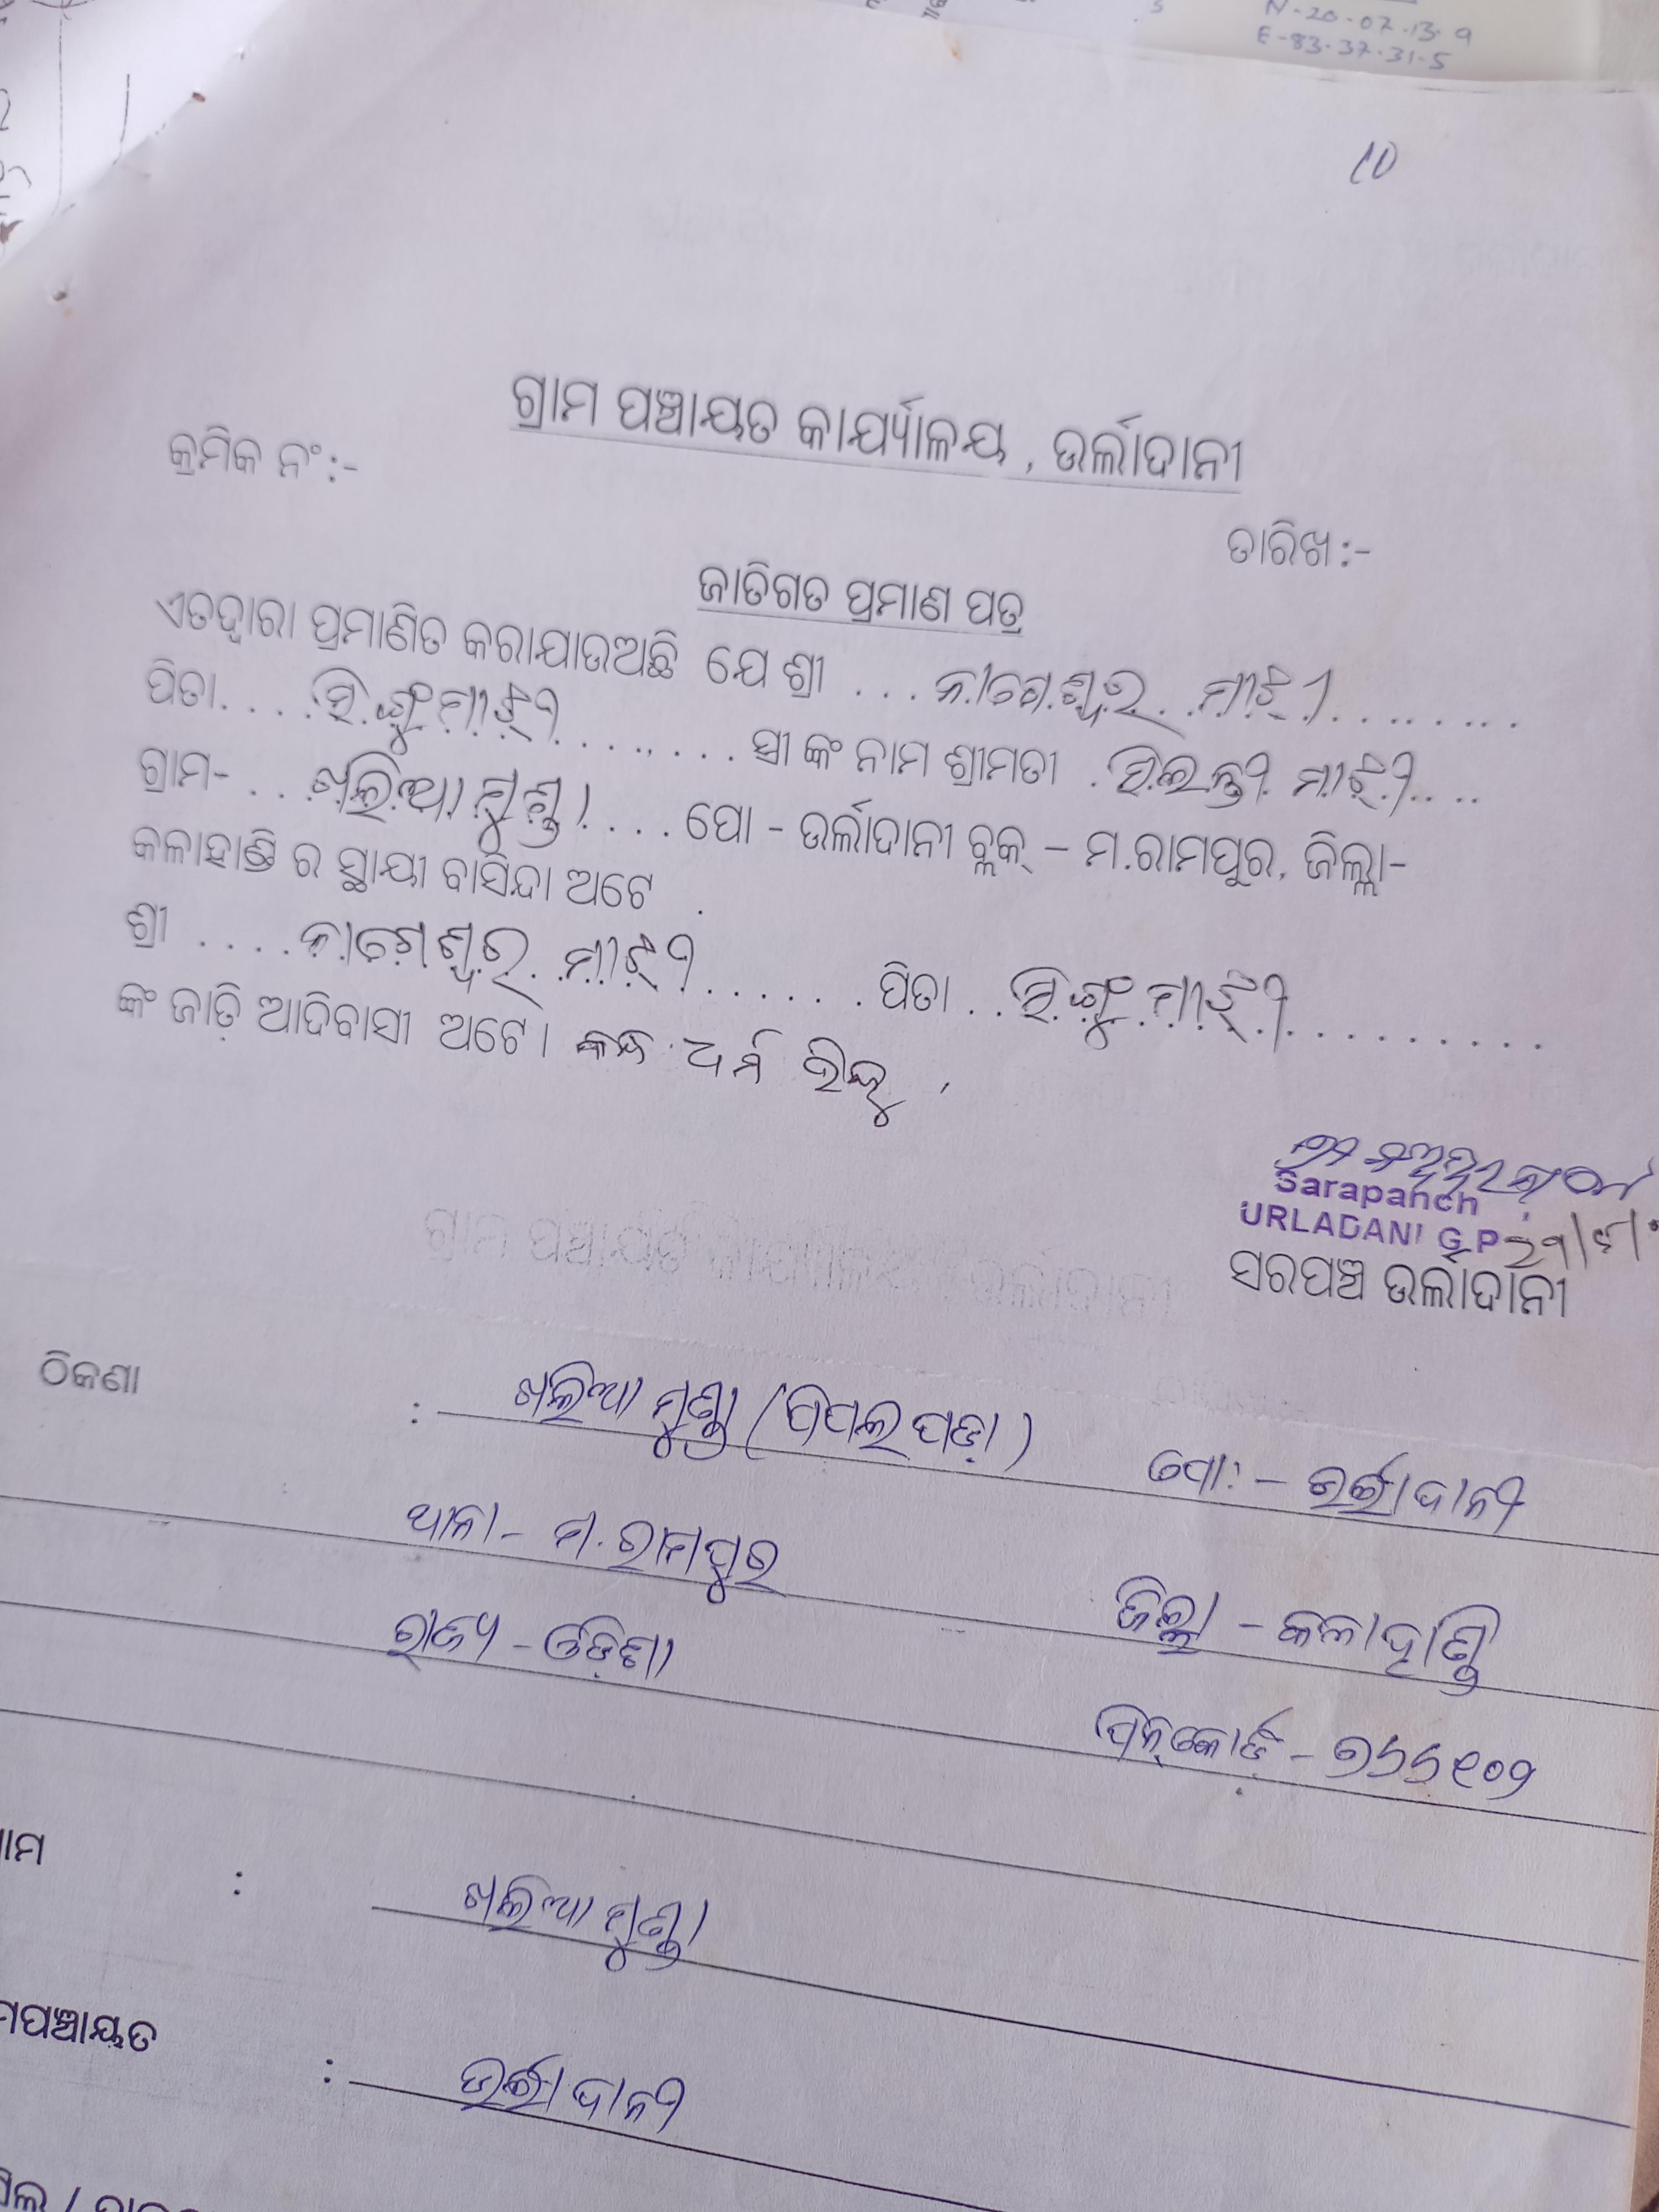 N-20-07.13.9
E-83.37.31.5
10
ଗ୍ରାମ ପଞ୍ଚାୟତ କାର୍ଯ୍ୟାଳୟ , ଉର୍ଲାଦାନୀ
କ୍ରମିକ ନଂ :-
ତାରିଖ :-
ଜାତିଗତ ପ୍ରମାଣ ପତ୍ର
ଏତଦ୍ୱାରା ପ୍ରମାଣିତ କରାଯାଉଅଛି ଯେ ଶ୍ରୀ ... ନାଗେଶ୍ୱର ମାଝୀ ........
ପିତା .... ସିଙ୍ଗୁ ମାଝୀ ........ ସ୍ତ୍ରୀ ଙ୍କ ନାମ ଶ୍ରୀମତୀ . ମାଝୀ ....
ଗ୍ରାମ- ... ଖଲିଆମୁଣ୍ଡା .... ପୋ - ଉର୍ଲାଦାନୀ ବ୍ଲକ୍ – ମ.ରାମପୁର, ଜିଲ୍ଲା-
କଳାହାଣ୍ଡି ର ସ୍ଥାୟୀ ବାସିନ୍ଦା ଅଟେ .
ଶ୍ରୀ .... ନାଗେଶ୍ୱର ମାଝୀ ....... ପିତା .. ସିଙ୍ଗୁ ମାଝୀ ..........
ଙ୍କ ଜାତି ଆଦିବାସୀ ଅଟେ। କନ୍ଧ ଧର୍ମ ହିନ୍ଦୁ
Sarapanch
URLADANI G.P
ସରପଞ୍ଚ ଉର୍ଲାଦାନୀ
ଠିକଣା : ଖଲିଆମୁଣ୍ଡା (ପିପଲପଡ଼ା) ପୋ:- ଉର୍ଲାଦାନୀ
ଥାନା- ମ.ରାମପୁର ଜିଲ୍ଲା - କଳାହାଣ୍ଡି
ରାଜ୍ୟ - ଓଡ଼ିଶା ପିନ୍‌କୋଡ - ୭୬୬୧୦୨
ାମ : ଖଲିଆମୁଣ୍ଡା
ମପଞ୍ଚାୟତ : ଉର୍ଲାଦାନୀ